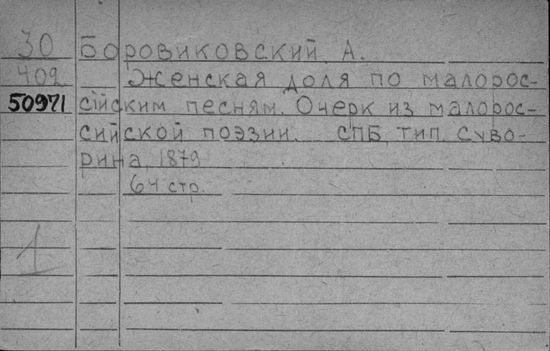 30 Боровиковский А.
402 Женская доля по малорос-
50971 сійским песням. Очерк из малорос-
сийской поэзии. СПБ, тип. Суво-
рина, 1879
64 стр.
1